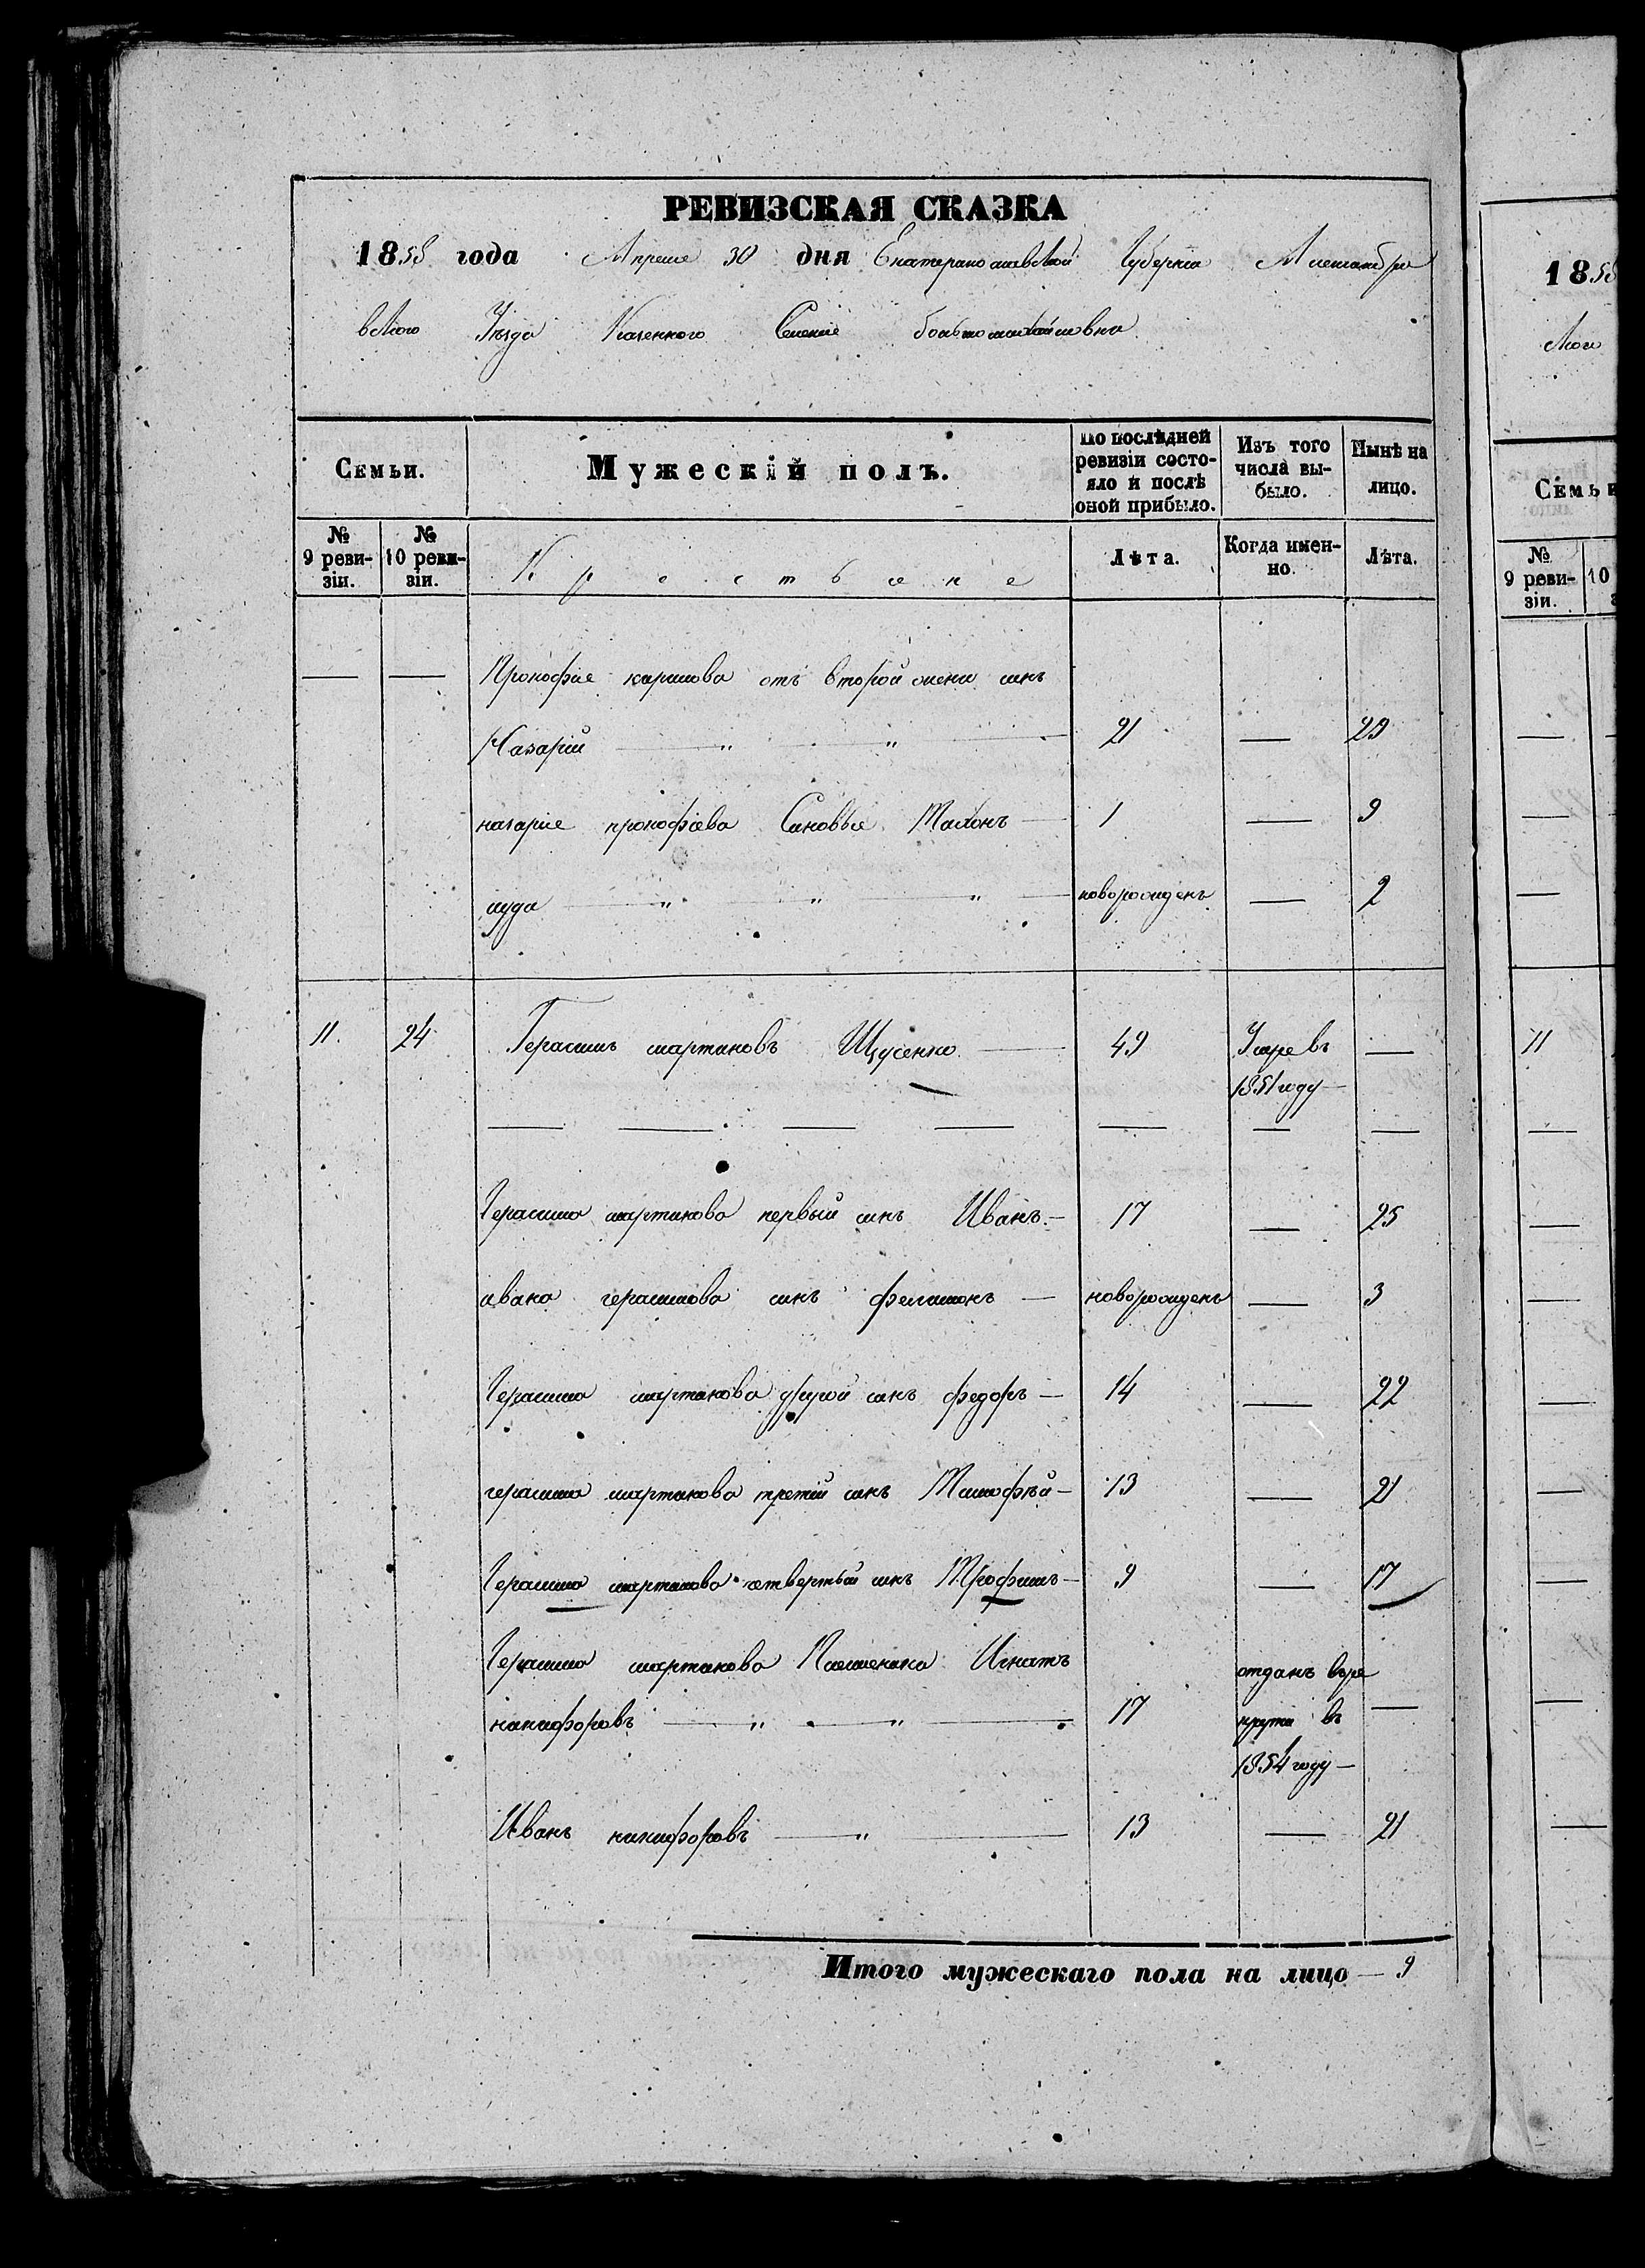 РЕВИЗСКАЯ СКАЗКА
1858 года Апреля 30 дня Екатеринославской Губернiи Александро
вского Уезда Казенного Селенiя больтомихайловка
Семьи.
Мужескiй полъ.
По послѣдней ревизiи состояло и послѣ оной прибыло.
Изъ того числа выбыло.
Нынѣ на лицо.
№ 9 ревизiи.
№ 10 ревизiи.
Крестьяне
Лѣта.
Когда именно.
Лѣта.
— — Прокофiя карпова отъ второй жени синъ
Назарiй — „ — „ — 21 — 29
назарiя прокофiева Синовья Тихонъ — 1 — 9
иуда — „ — „ — „ — новорожденъ — 2
11. 24 Герасимъ мартиновъ Щусенко — 49 Умре въ —
1851 году —
Герасима мартинова первый синъ Иванъ — 17 — 25
ивана герасимова синъ филимонъ — новорожденъ — 3
Герасима мартинова другой синъ федоръ — 14 — 22
герасима мартинова третiй синъ Тимофѣй — 13 — 21
Герасима мартинова четвертый синъ Трофимъ — 9 — 17
Герасима мартинова Племеника Игнатъ
никифоровъ — „ — „ — 17 отданъ въре —
крути въ
1854 году —
Иванъ никифоровъ — „ — 13 — 21
Итого мужескаго пола на лицо — 9
1858
Семьи
№ 9 ревизiи.
10
11